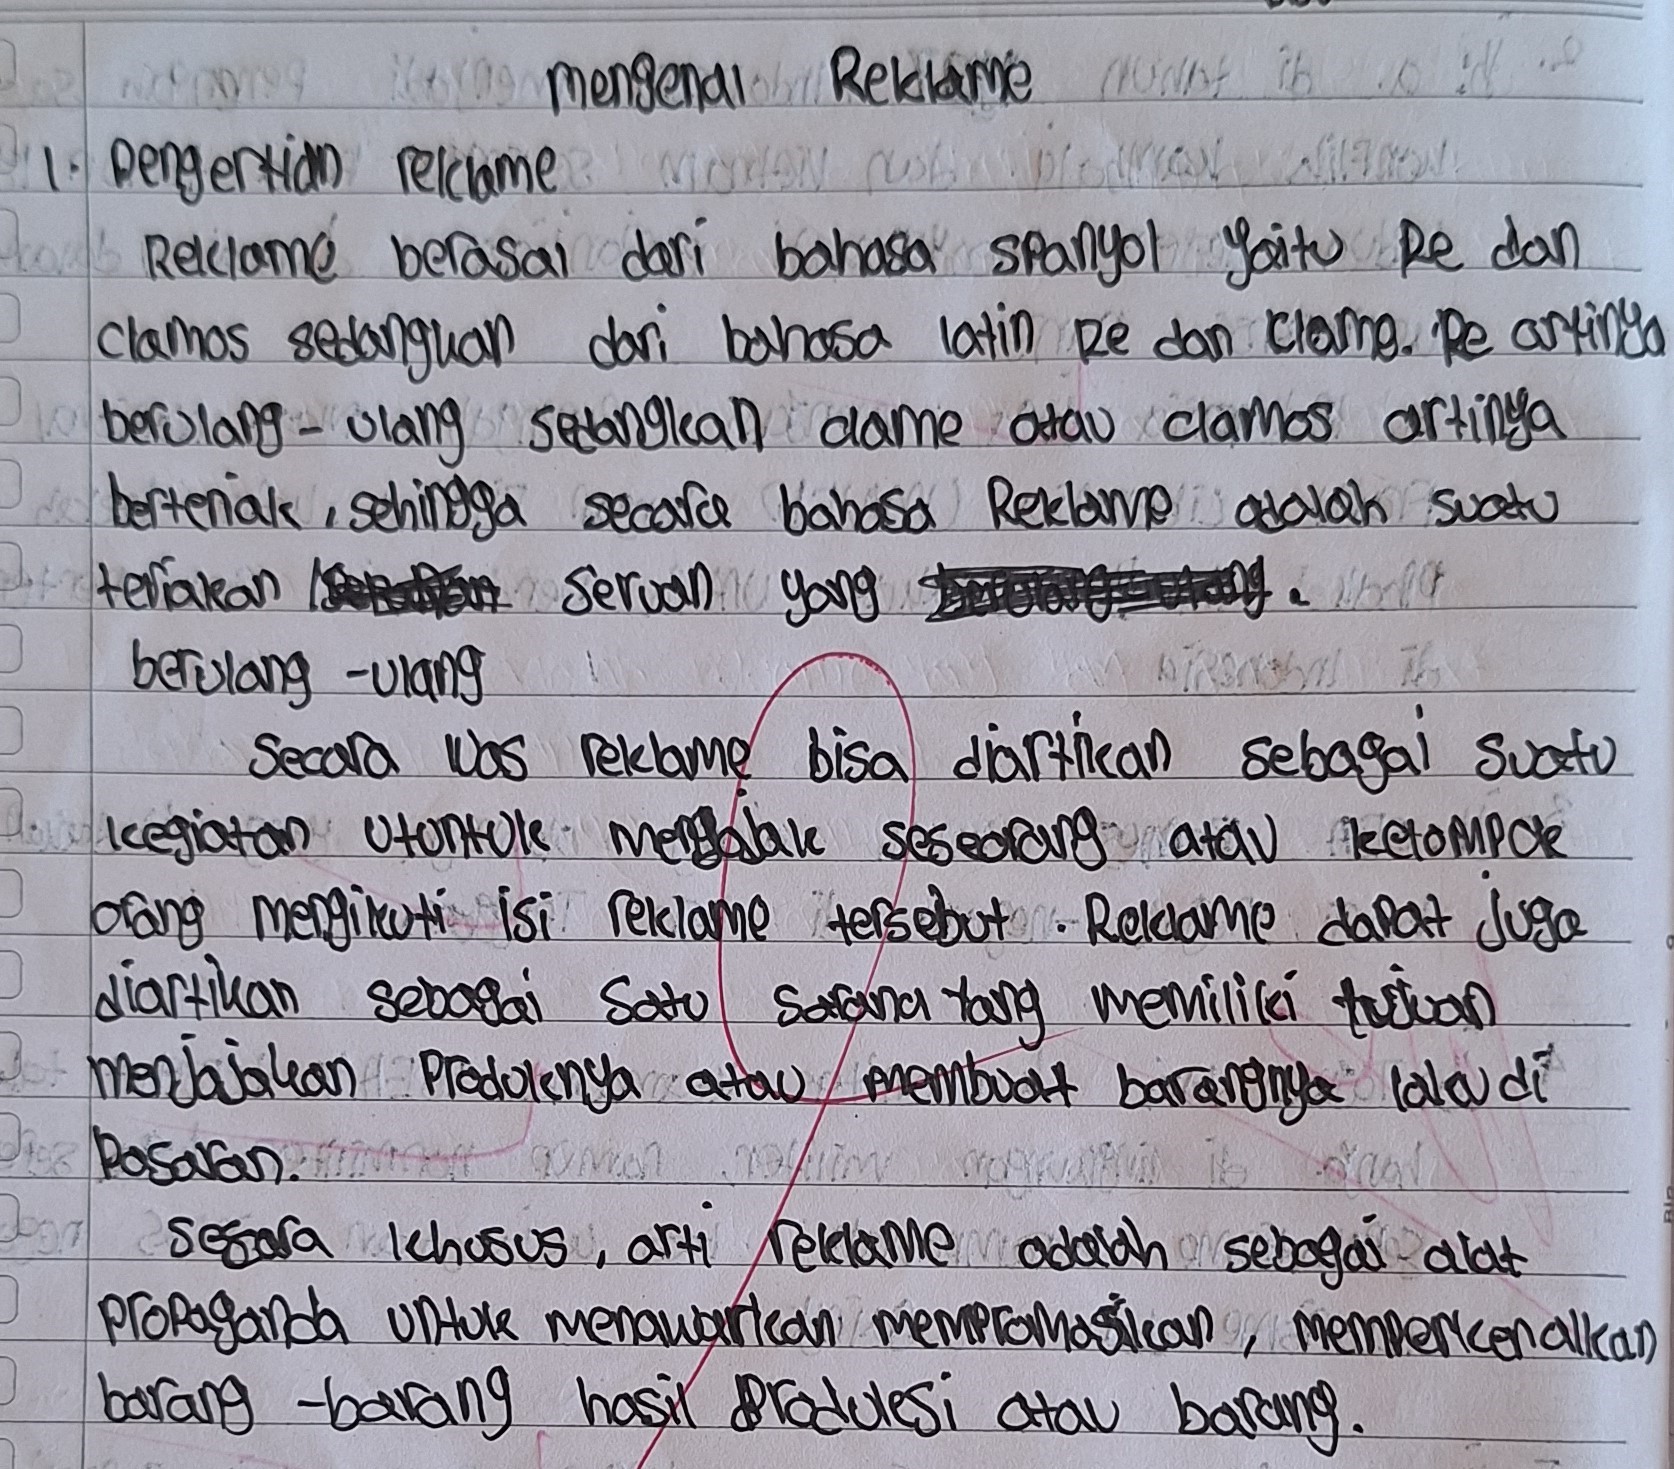 mengenal Reklame
1. Pengertian reklame
Reklame berasal dari bahasa spanyol yaitu Re dan
clamos sedangkan dari bahasa latin Re dan Clame. Re artinya
berulang - ulang sedangkan clame atau clamos artinya
berteriak, sehingga secara bahasa Reklame adalah suatu
teriakan seruan yang .
berulang - ulang
Secara luas reklame bisa diartikan sebagai suatu
kegiatan utuntuk mengajak seseorang atau kelompok
orang mengikuti isi reklame tersebut. Reklame dapat juga
diartikan sebagai satu sarana yang memiliki tujuan
menjajakan Produknya atau membuat barangnya laku di
Pasaran.
Secara khusus, arti reklame adalah sebagai alat
propaganda untuk menawarkan mempromosikan, memperkenalkan
barang - barang hasil Produksi atau barang.